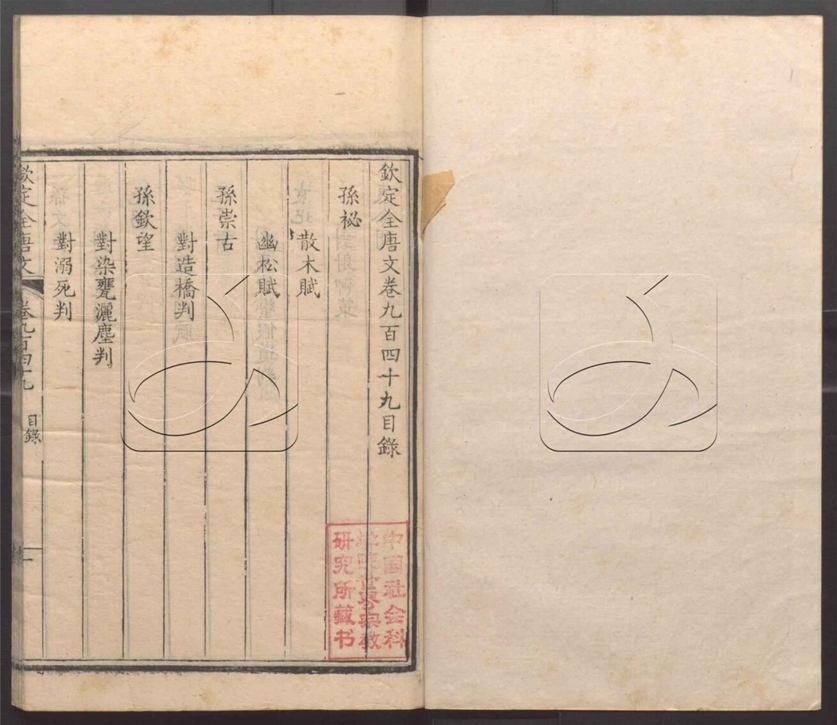 欽定全唐文卷九百四十九目錄
孫祕
散木賦
幽松賦
孫崇古
對造橋判
孫欽望
對染甕灑塵判
對溺死判
欽定全唐文
卷九百四十九
目錄
一
中国社会科
学院世界宗教
研究所藏书